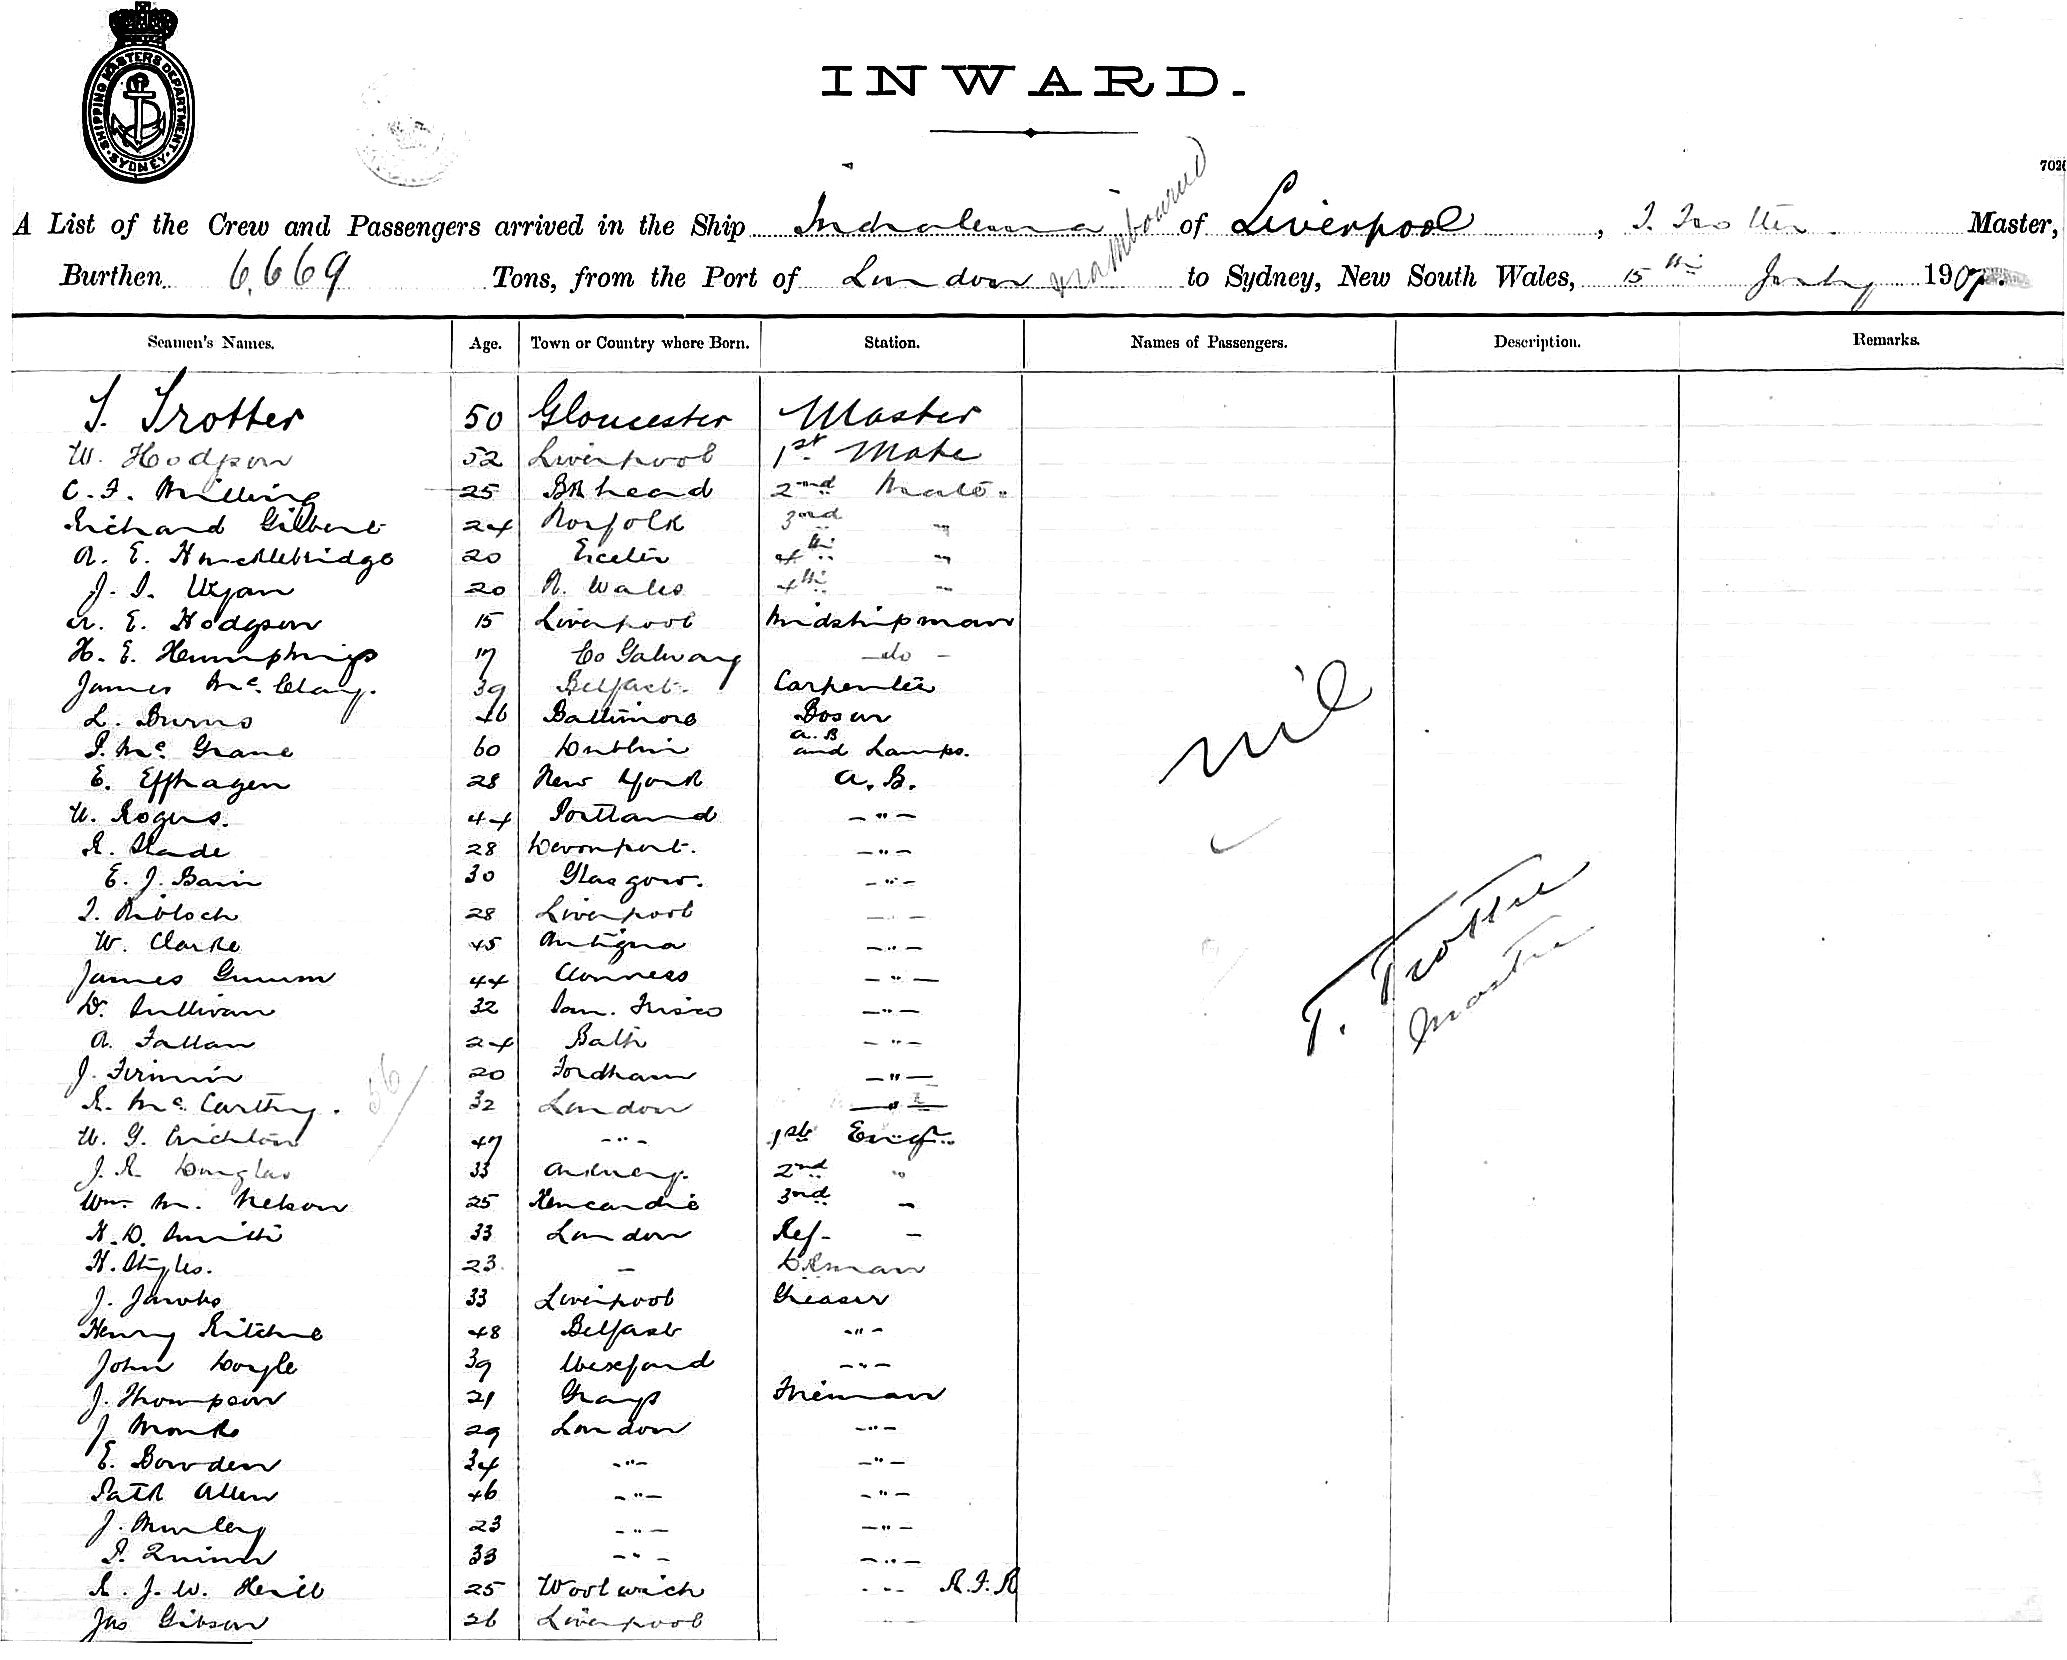 SHIPPING MASTERS DEPARTMENT. SYDNEY.
INWARD.
A List of the Crew and Passengers arrived in the Ship Indralema of Liverpool, T. Trotter Master,
Burthen 6,669 Tons, from the Port of London to Sydney, New South Wales, 15th 1907.
Seamen's Names. Age. Town or Country where Born. Station. Names of Passengers. Description. Remarks.
T. Trotter 50 Gloucester Master
W. Hodgson 52 Liverpool 1st. Mate
C. F. Milling 25 BKhead 2nd Mate.
Richard Gilbert 24 Norfolk 3rd "
A. E. Hucklebridge 20 Exeter 4th "
J. I. Wynn 20 N. Wales 4th "
A. E. Hodgson 15 Liverpool Midshipman
H. E. Humphrips 17 Co Galway - do -
James Mc. Clay. 39 Belfast. Carpenter
L. Burns 46 Baltimore Bosun
P. Mc Grane 60 Dublin A.B and Lamps.
E. Effhagen 28 New York A.B.
W. Rogers. 44 Portland - " -
R. Slade 28 Devonport. - " -
E. J. Bain 30 Glasgow. - " -
T. Nibloch 28 Liverpool - " -
W. Clarke 45 Antigua - " -
James Gunum 44 Clonness - " -
D. Sullivan 32 San. Frisco - " -
A. Fallan 24 Bath - " -
J. Firmin 20 Fordham - " -
R. Mc. Carthy. 32 London - " -
W. G. Crichton 47 - " - 1st Engr.
J. R. Douglas 33 2nd "
Wm. M. Nelson 25 3rd "
H. D. Smith 33 London Ref -
H. Styles. 23 - Dkman
J. Jacobs 33 Liverpool Greaser
Henry Ritchie 48 Belfast - " -
John Doyle 39 Wexford - " -
J. Thompson 21 Grays Fireman
J Monks 29 London - " -
E. Bowden 34 - " - - " -
Patk Allen 46 - " - - " -
J. Murley 23 - " - - " -
P. Quinn 33 - " - - " -
R. J. W. 25 Woolwich - " - R.F.R
Jas Gibson 26 Liverpool
nil
T. Trotter
Master
56